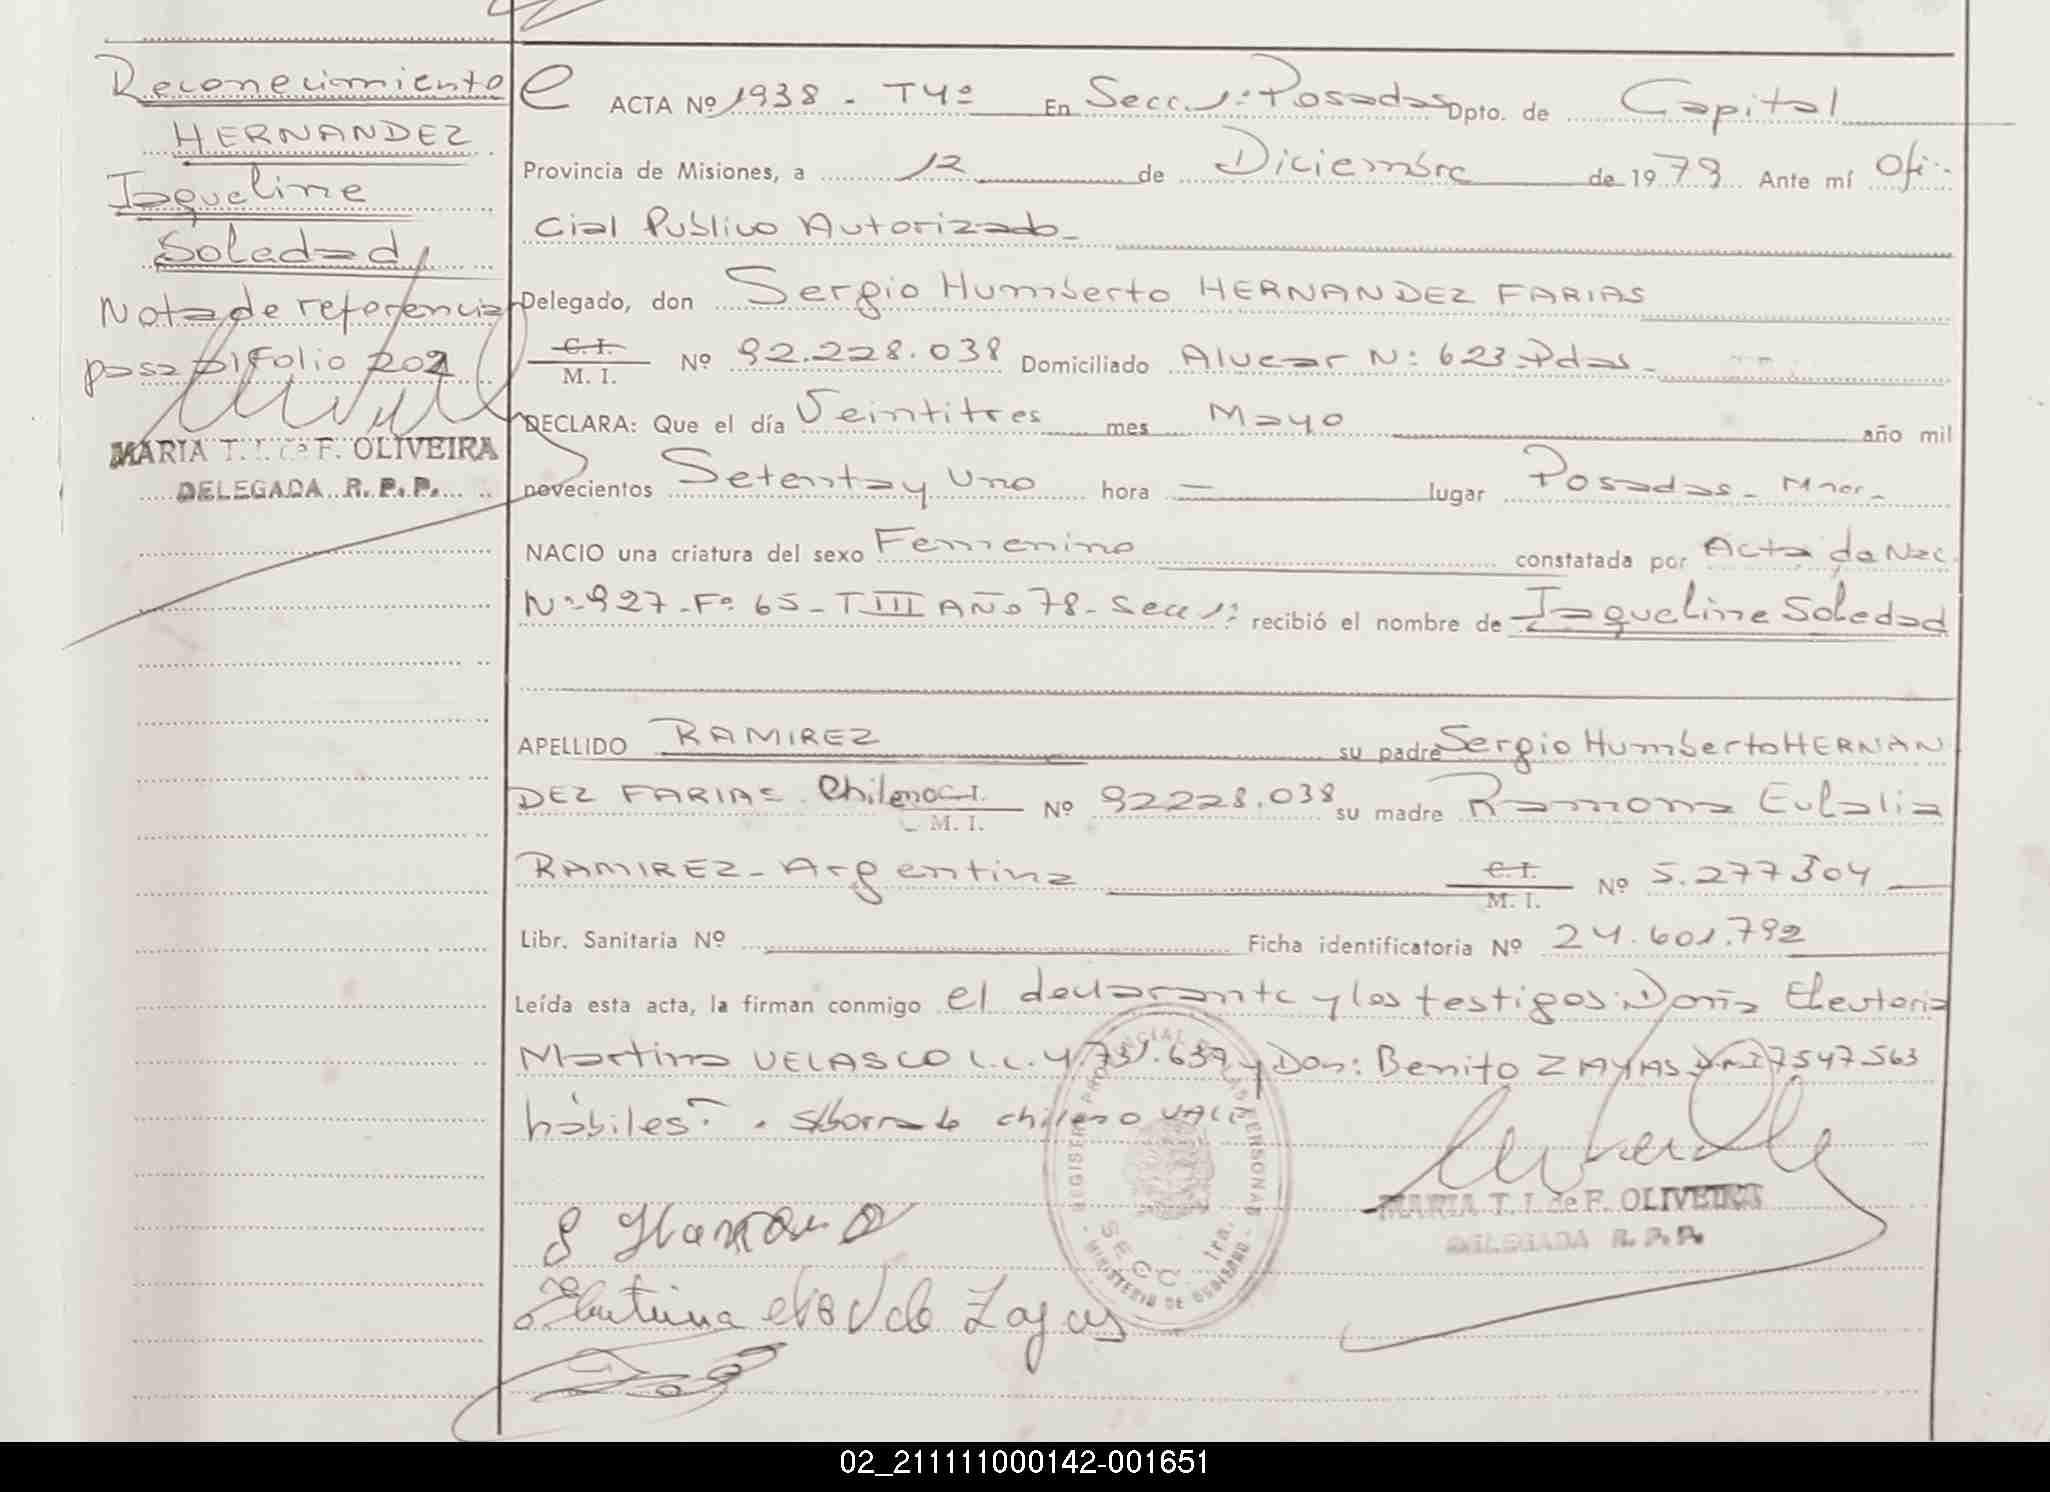 Reconocimiento
HERNANDEZ
Jaqueline
Soledad
Nota de referencia
pasa al Folio 202
MARIA T. I. de F. OLIVEIRA
DELEGADA R. P. P.
ACTA Nº 1938 - T4º En Secc. 1ª Posadas Dpto. de Capital
Provincia de Misiones, a 12 de Diciembre de 1979 Ante mí Ofi-
cial Publico Autorizado
Delegado, don Sergio Humberto HERNANDEZ FARIAS
C. I.
M. I. Nº 92.228.038 Domiciliado Alvear Nº 623 Pdas
DECLARA: Que el día Veintitres mes Mayo año mil
novecientos Setenta y Uno hora — lugar Posadas - Mnes.
NACIO una criatura del sexo Femenino constatada por Acta de Nac.
Nº 927 - Fº 65 - T III AÑO 78 - Secc 1ª recibió el nombre de Jaqueline Soledad
APELLIDO RAMIREZ su padre Sergio Humberto HERNAN
DEZ FARIAS Chileno C. I.
M. I. Nº 92228.038 su madre Ramona Eulalia
RAMIREZ - Argentina C. I.
M. I. Nº 5.277304
Libr. Sanitaria Nº Ficha identificatoria Nº 24.601.792
Leída esta acta, la firman conmigo el declarante y los testigos: Doña Eleuteria
Martina VELASCO L.C. 4.731.637 y Don: Benito ZAYAS DNI 7547563
hábiles. S/borrado chileno VALE
REGISTRO PROVINCIAL DE LAS PERSONAS
SECC. 1ra.
MINISTERIO DE GOBIERNO
MARIA T. I. de F. OLIVEIRA
DELEGADA R. P. P.
02_211111000142-001651